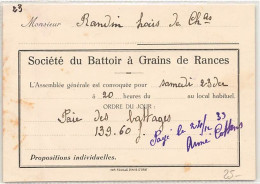 33
Monsieur Randin Louis de Chs
Société du Battoir à Grains de Rances
L'Assemblée générale est convoquée pour samedi 23 der
à 20 heures du au local habituel.
ORDRE DU JOUR:
Paie des battages
139.60 f.
Payé le 33
Propositions individuelles.
25.-